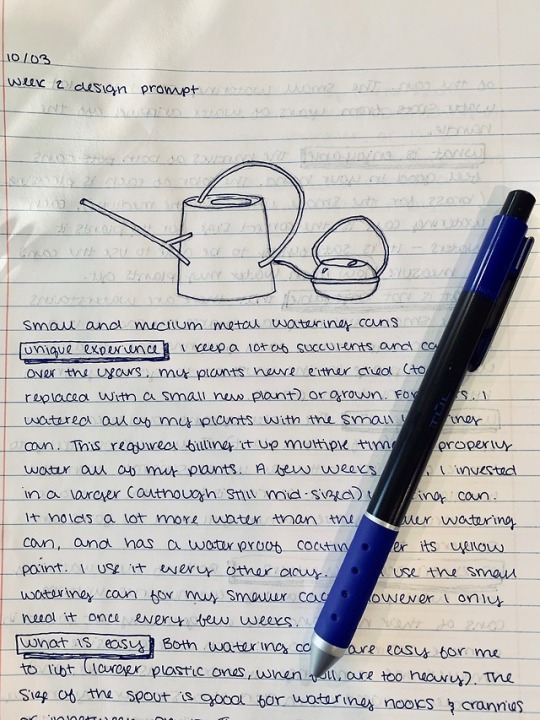 10/03
week 2 design prompt
small and medium metal watering cans
unique experience I keep a lot of succulents and
over the years, my plants have either died (to
replaced with a small new plant) or grown. For I
watered all of my plants with the small
can. This required filling it up multiple properly
water all of my plants. A few weeks I invested
in a larger (although still mid-sized)
It holds a lot more water than the watering
can, and has a waterproof its yellow
paint. I use it every other day. use the small
watering can for my smaller however I only
need it once every few weeks.
what is easy Both watering are easy for me
to lift (larger plastic ones, when full, are too heavy). The
size of the spout is good for watering nooks & crannies
TUL